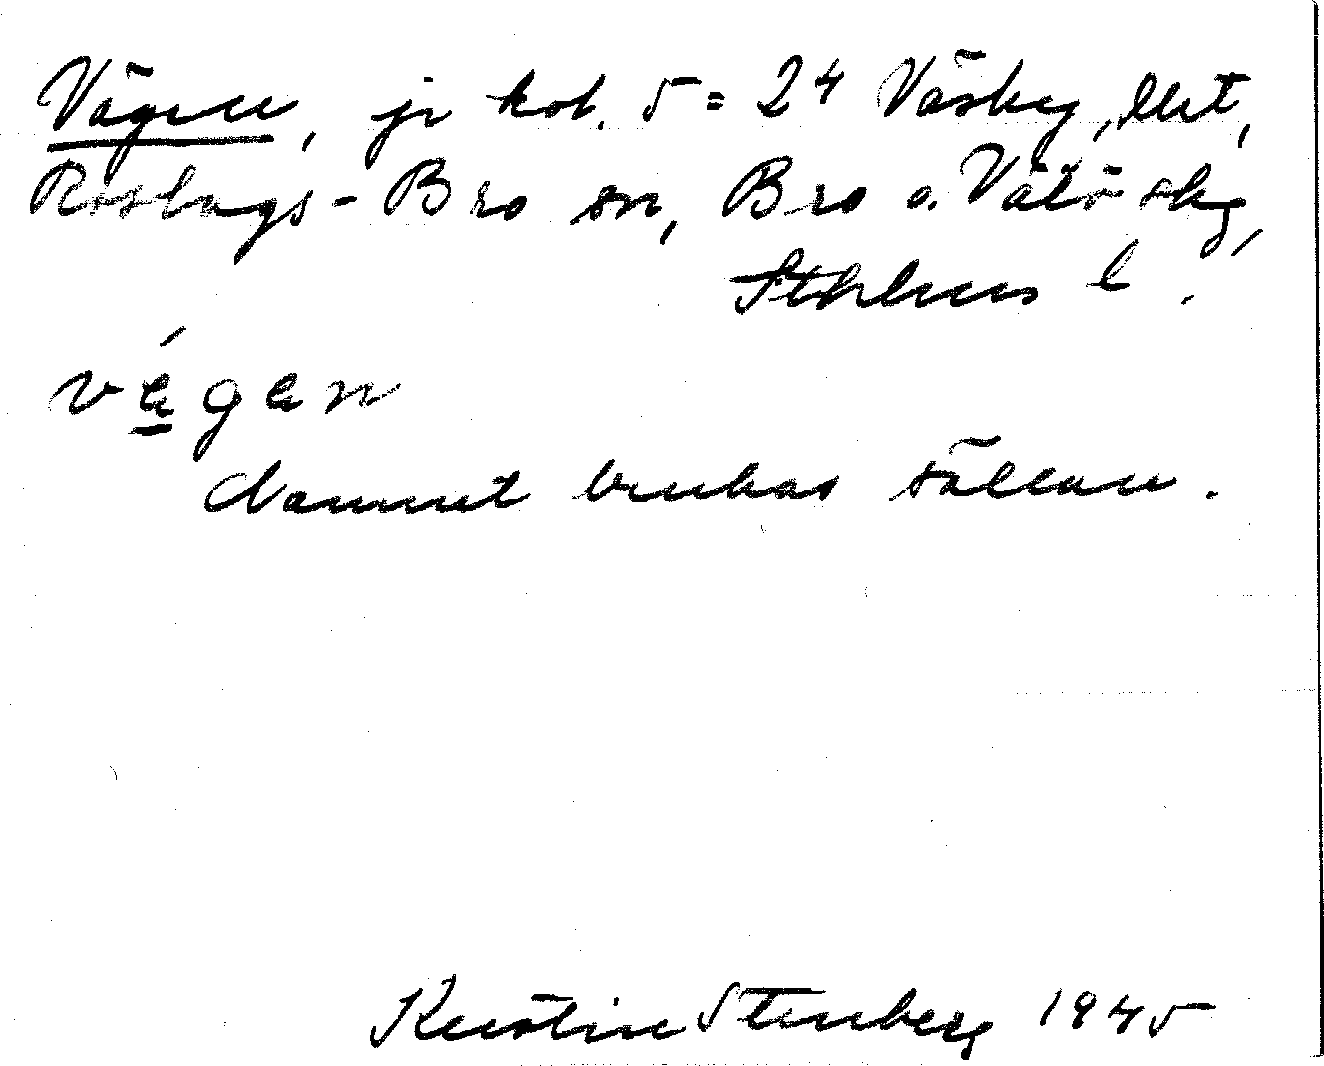 Vägen, jr kol. 5 = 24 Väsby, lht,
Roslags-Bro sn, Bro o. Vätö skg,
Sthlms l.
vä́gan
Namnet brukas sällan.
Kerstin Stenberg 1945